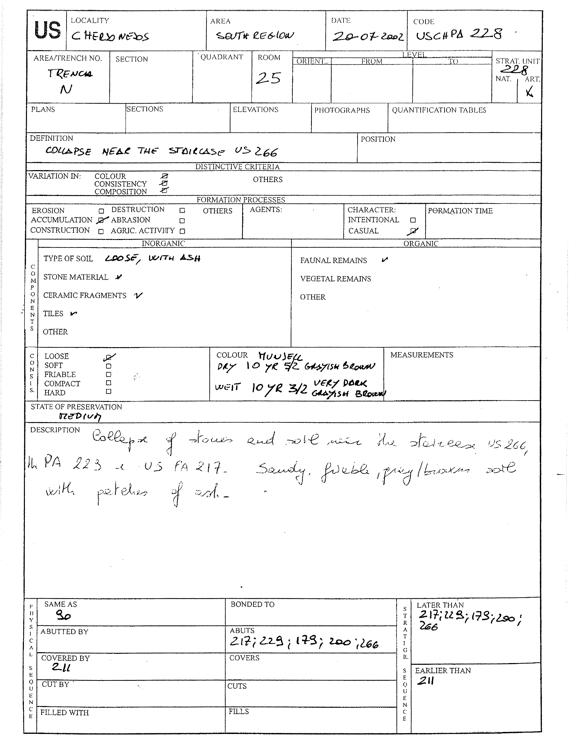 US
LOCALITY
CHERSONESOS
AREA
SOUTH REGION
DATE
20-07-2002
CODE
USCHPA 228
AREA/TRENCH NO.
TRENCH
N
SECTION
QUADRANT
ROOM
25
LEVEL
ORIENT.
FROM
TO
STRAT. UNIT
228
NAT.
ART.
X
PLANS
SECTIONS
ELEVATIONS
PHOTOGRAPHS
QUANTIFICATION TABLES
DEFINITION
COLLAPSE NEAR THE STAIRCASE US 266
POSITION
DISTINCTIVE CRITERIA
VARIATION IN: COLOUR
CONSISTENCY
COMPOSITION
OTHERS
FORMATION PROCESSES
EROSION
ACCUMULATION
CONSTRUCTION
DESTRUCTION
ABRASION
AGRIC. ACTIVITY
OTHERS
AGENTS:
CHARACTER:
INTENTIONAL
CASUAL
FORMATION TIME
COMPONENTS
INORGANIC
TYPE OF SOIL LOOSE, WITH ASH
STONE MATERIAL
CERAMIC FRAGMENTS
TILES
OTHER
ORGANIC
FAUNAL REMAINS
VEGETAL REMAINS
OTHER
CONSIS.
LOOSE
SOFT
FRIABLE
COMPACT
HARD
COLOUR MUNSELL
DRY 10 YR 5/2 GRAYISH BROWN
WEIT 10 YR 3/2 VERY DARK
GRAYISH BROWN
MEASUREMENTS
STATE OF PRESERVATION
MEDIUM
DESCRIPTION Collapse of stones and soil near the staircase US 266,
in PA 223 US PA 217. Sandy, friable, grey/brown soil
with patches of ash.
PHYSICAL SEQUENCE
SAME AS
90
BONDED TO
ABUTTED BY
ABUTS
217; 229; 179; 200; 266
COVERED BY
211
COVERS
CUT BY
CUTS
FILLED WITH
FILLS
STRATIGR. SEQUENCE
LATER THAN
217; 229; 179; 200;
266
EARLIER THAN
211